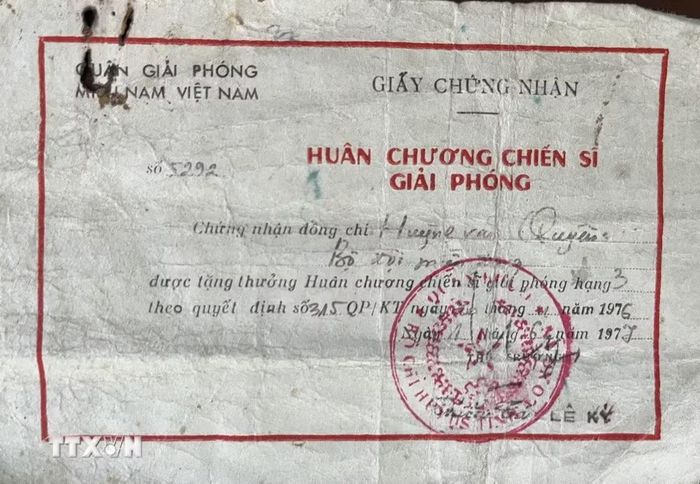 QUÂN GIẢI PHÓNG
MIỀN NAM VIỆT NAM
GIẤY CHỨNG NHẬN
HUÂN CHƯƠNG CHIẾN SĨ
GIẢI PHÓNG
số 5292
Chứng nhận đồng chí Huỳnh văn Quyền
Bộ đội
được tặng thưởng Huân chương chiến sĩ giải phóng hạng 3
theo quyết định số 315 QP/KT ngày tháng năm 1976
Ngày tháng 6 năm 1977
LÊ KÝ
TTXVN